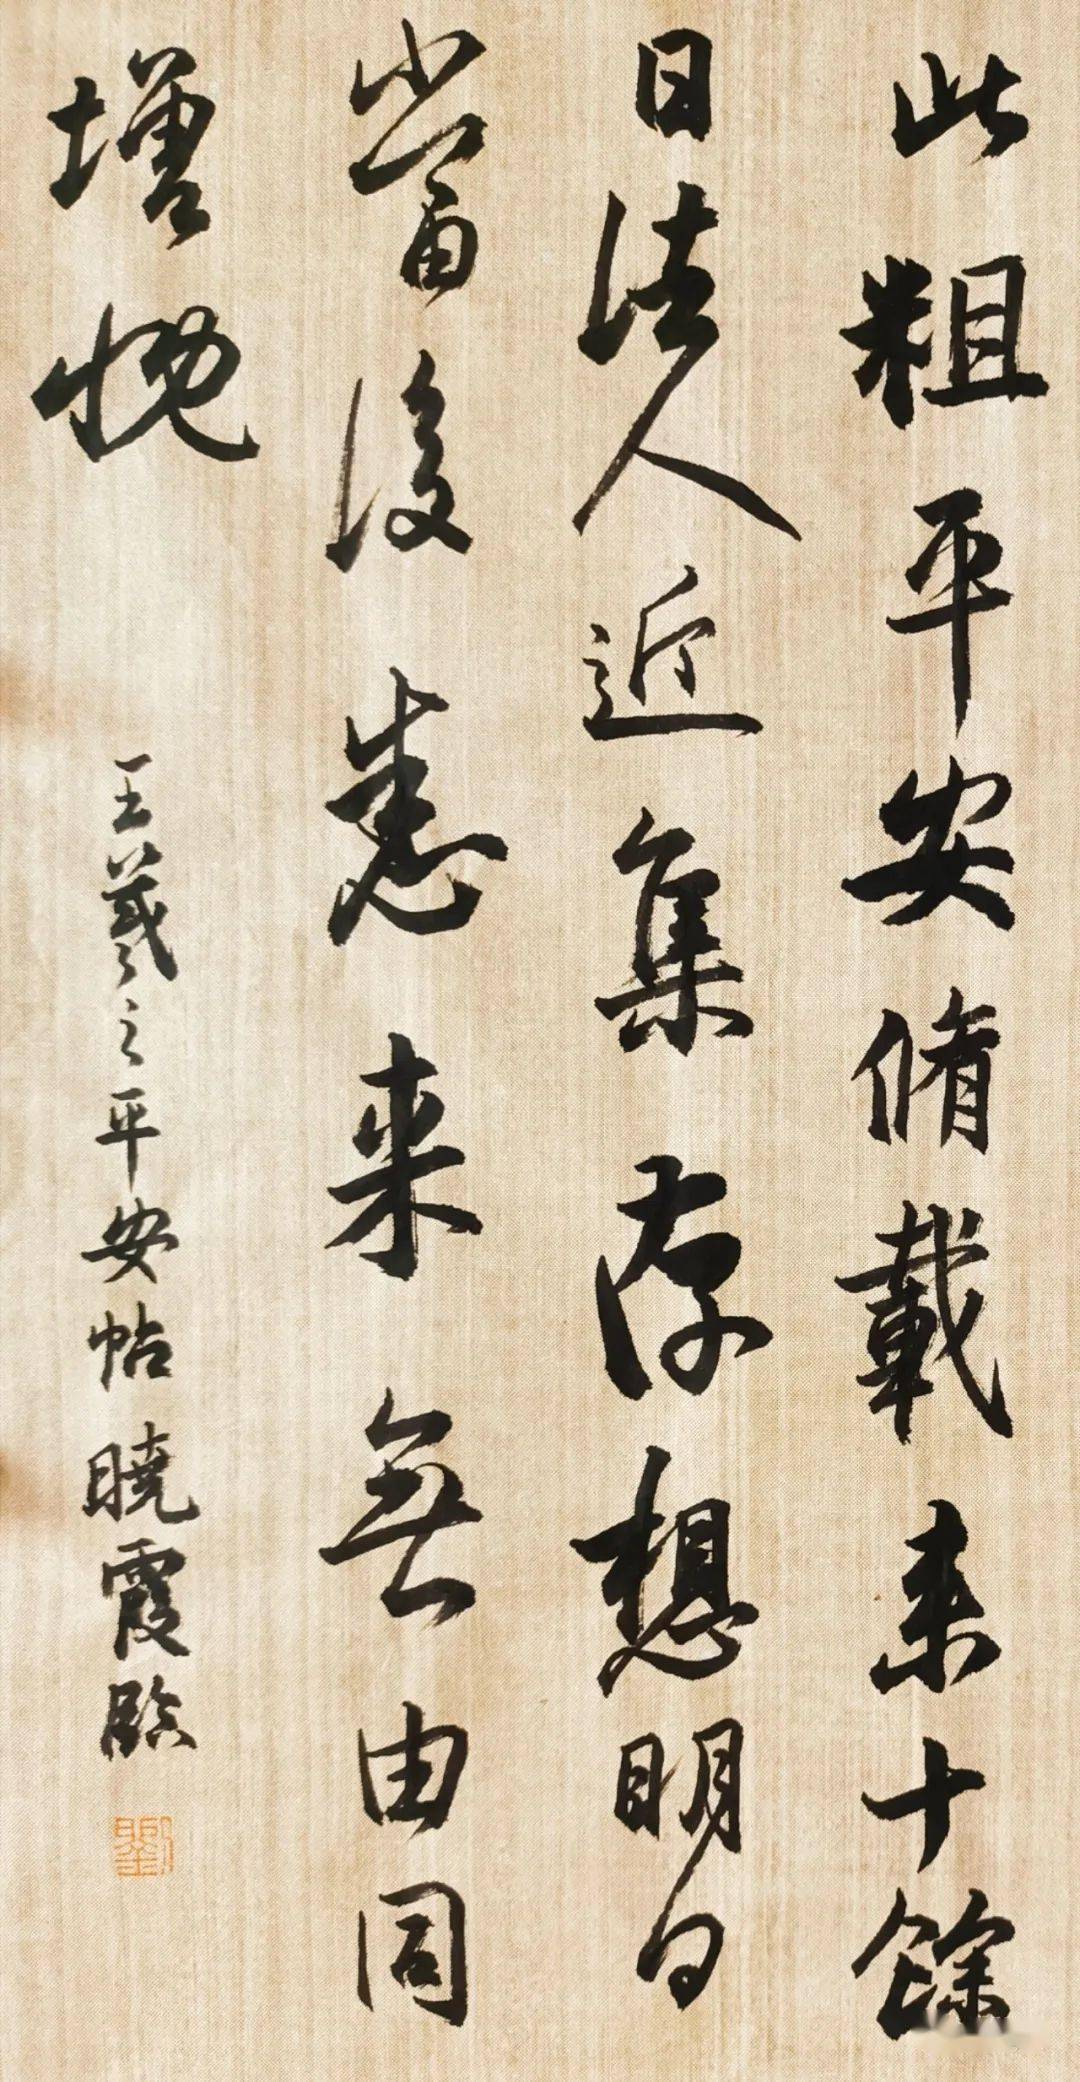 此粗平安脩載来十餘
日諸人近集存想明日
當復悉来無由同
增慨
王羲之平安帖 曉霞臨
劉